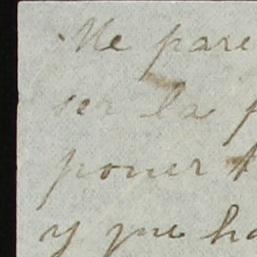 Me pare
ser la p
poner
y que ha